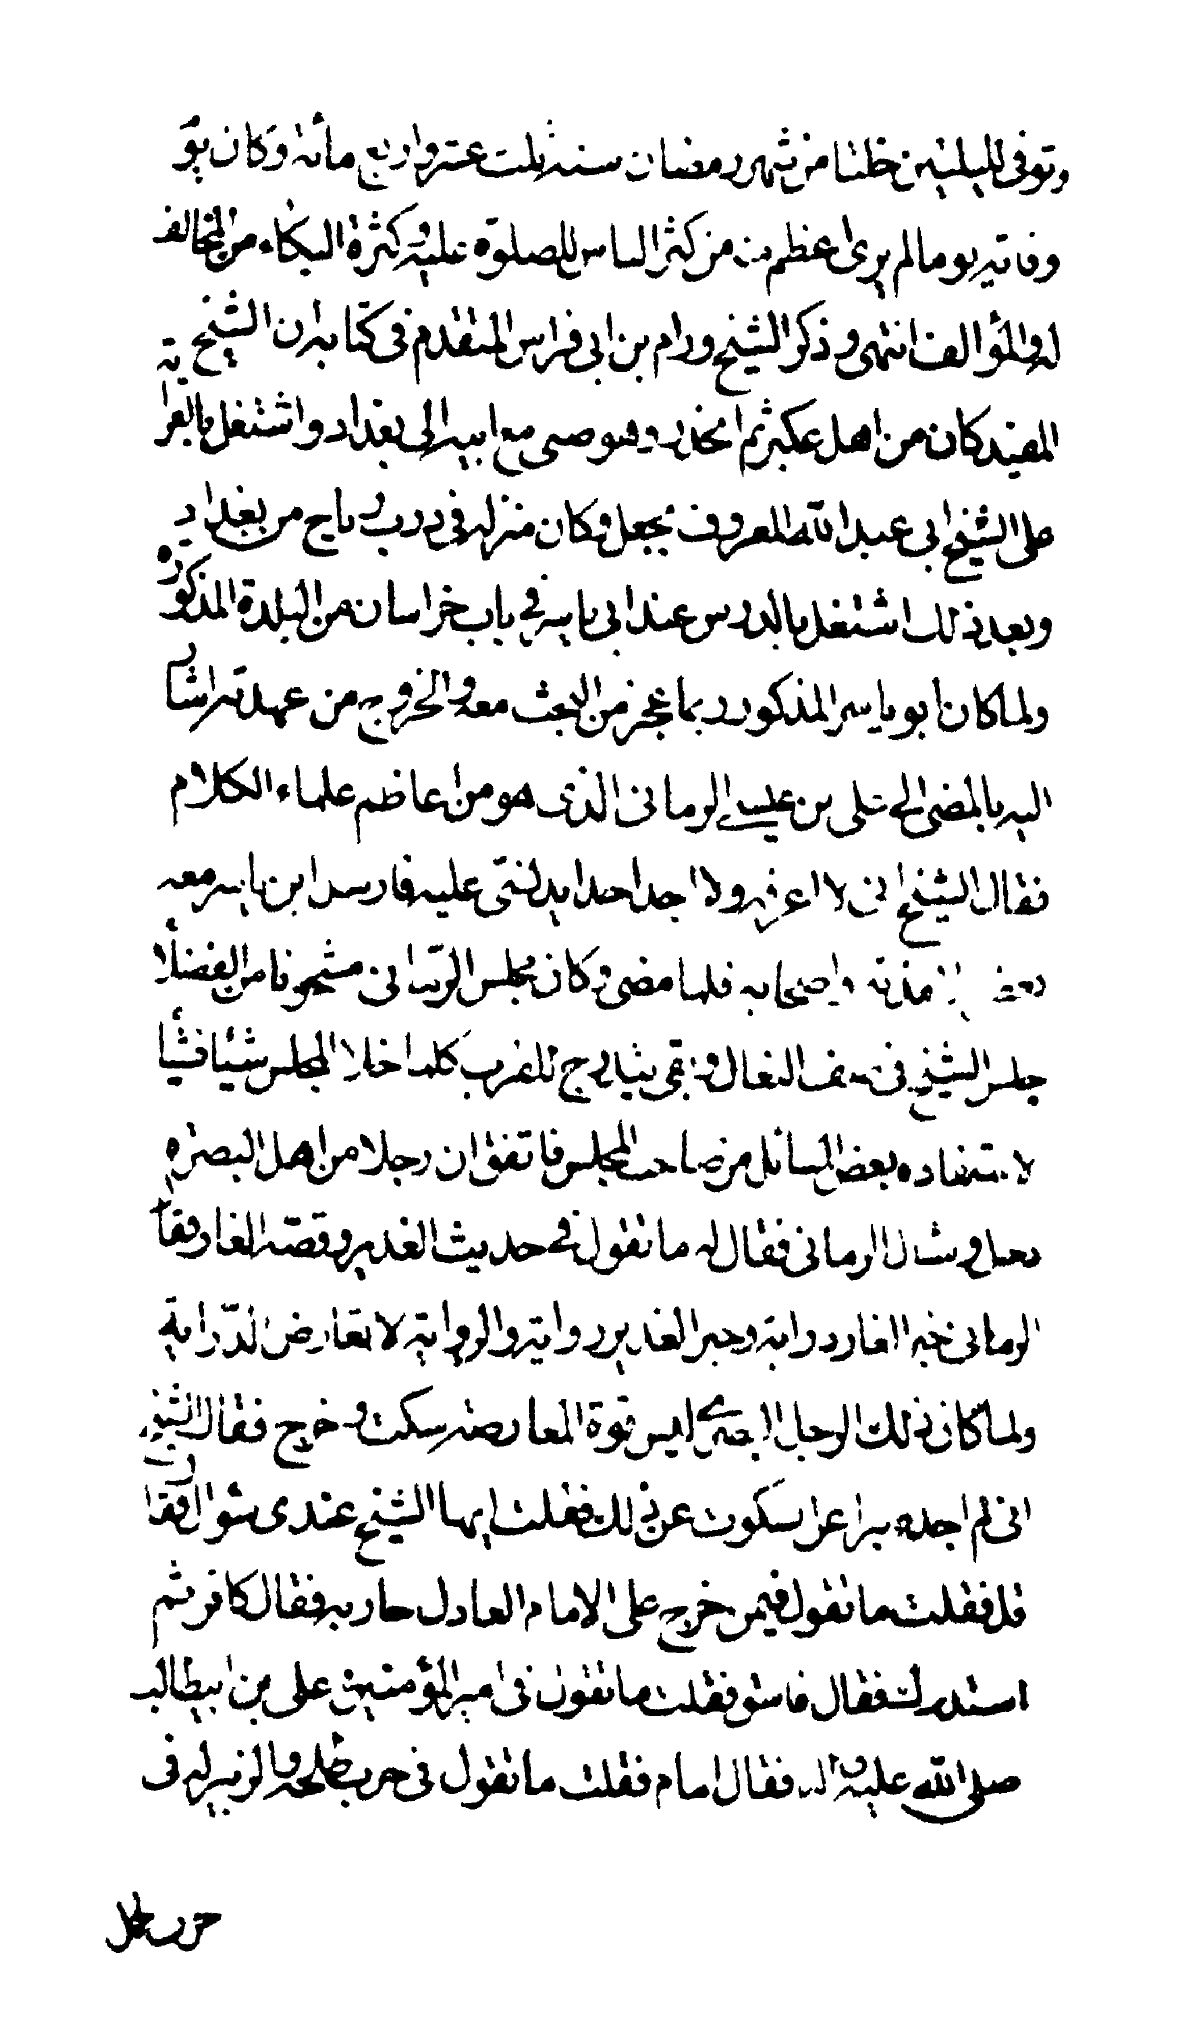 وتوفى لليلتين خلتا من شهر رمضان سنة ثلث عشر واربع مائة وكان يو
وفاته يوما لم يرى اعظم منه من كثر الناس للصلوة عليه وكثرة البكاء من المخالف
له والمؤالف انتهى وذكر الشيخ ورام بن ابى فراس المتقدم فى كتابه ان الشيخ
المفيد كان من اهل عكبر ثم انحدر وهو صبى مع ابيه الى بغداد واشتغل بالقراءة
على الشيخ ابى عبد الله المعروف بجعل وكان منزله فى درب رباح من بغداد
وبعد ذلك اشتغل بالدرس عند ابى ياسر فى باب خراسان من البلدة المذكوره
ولما كان أبو ياسر المذكور ربما عجز من البحث معه والخروج من عهدته اشار
اليه بالمضى الى على بن عيسى الرمانى الذى هو من اعاظم علماء الكلام
فقال الشيخ انى لا اعرفه ولا اجد احدا يدلنى عليه فارسل ابن ياسر معه
بعض تلامذته واصحابه فلما مضى وكان مجلس الرمانى مشحونا من الفضلا
جلس الشيخ فى صف النعال وبقى يتدرج للقرب كلما خلا المجلس شيئا فشيأ
لاستفاده بعض المسائل من صاحب المجلس فاتفق ان رجلا من اهل البصره
دخل وسئال الرمانى فقال له ما تقول فى حديث الغدير وقصة الغار فقال
الرمانى خبر الغار دراية وخبر الغدير رواية والرواية لا تعارض الدراية
ولما كان ذلك الرجل البصرى ليس قوة المعارضه سكت وخرج فقال الشيخ
انى لم اجد صبرا عن السكوت عن ذلك فقلت ايها الشيخ عندى سؤال فقال
قل فقلت ما تقول فيمن خرج على الامام العادل حاربه فقال كافر ثم
استدرك فقال فاسق فقلت ما تقول فى امير المؤمنين على بن ابيطالب
صلى الله عليه واله فقال امام فقلت ما تقول فى حرب طلحه والزبير له فى
حرب جمل